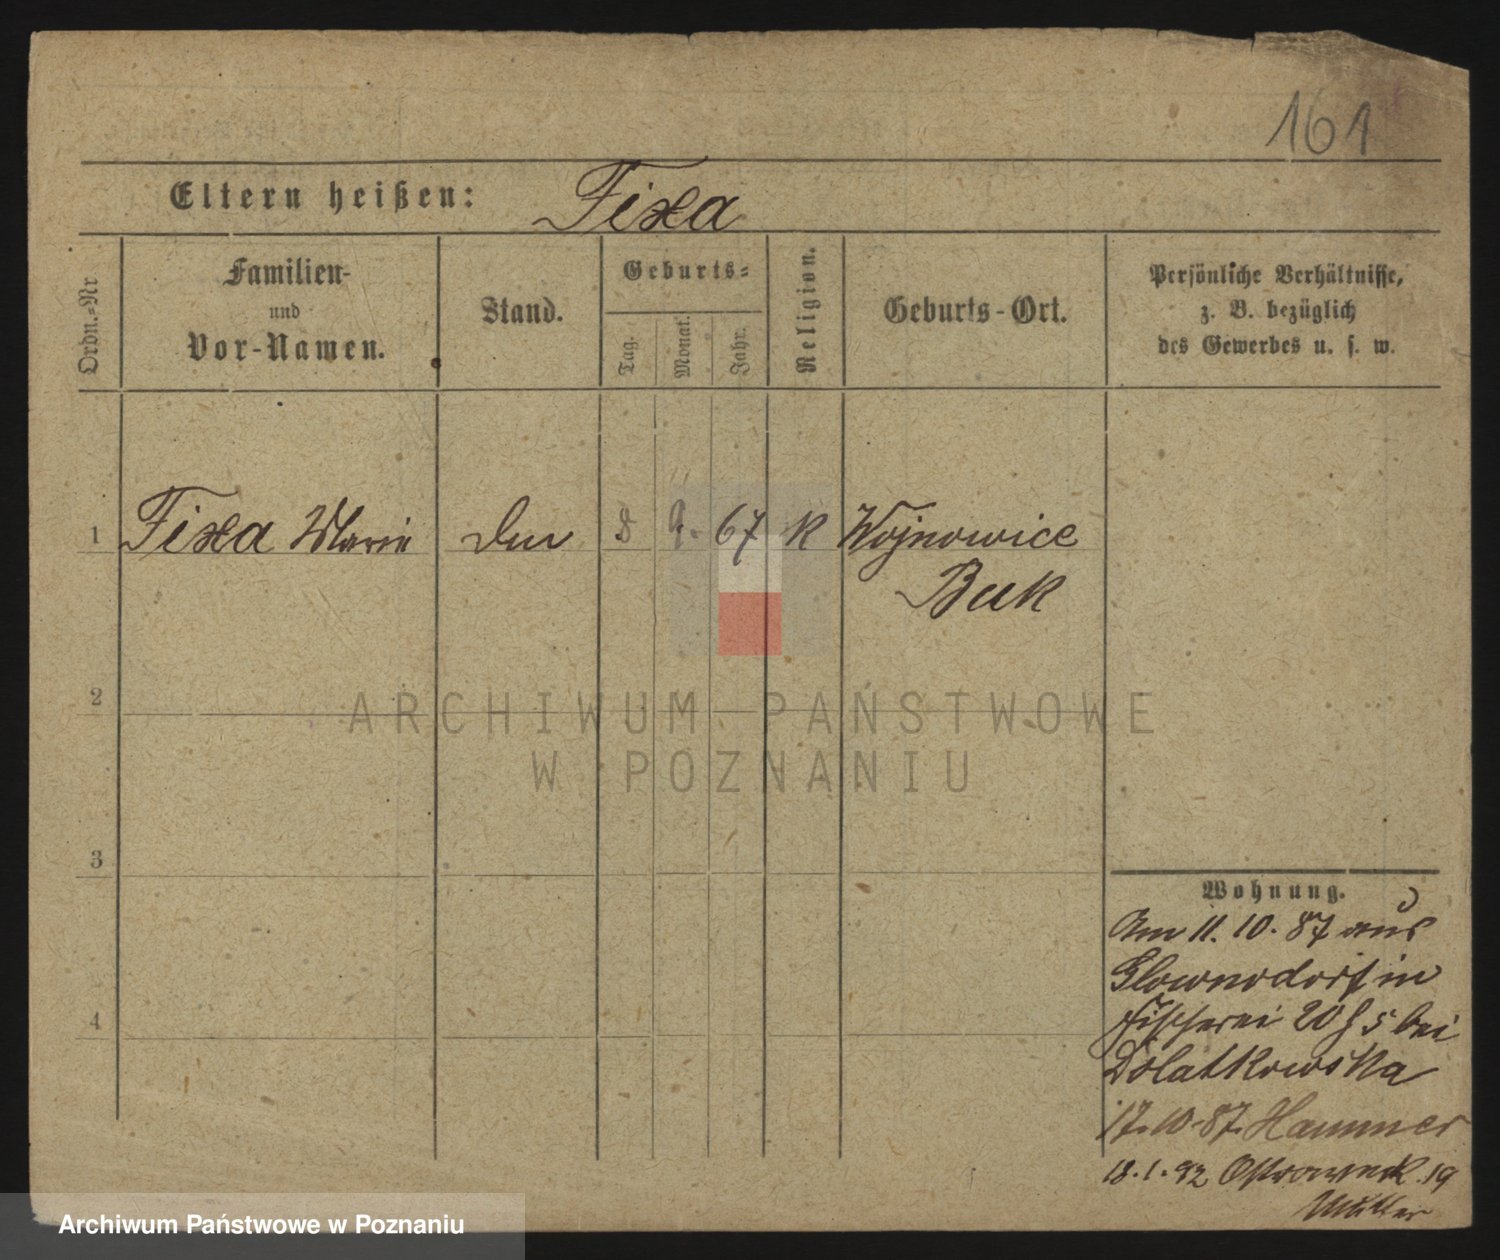 161
Eltern heißen: Fixa
Ordn.-Nr
Familien-
und
Vor-Namen.
Stand.
Geburts-
Tag.
Monat.
Jahr.
Religion.
Geburts-Ort.
Persönliche Verhältnisse,
z. B. bezüglich
des Gewerbes u. s. w.
1 Fixa Marie 8 9. 67 K Wojnowice
Buk
2
ARCHIWUM PAŃSTWOWE
W POZNANIU
3
4
Wohnung.
Am 11. 10. 87 aus
Glownodorf in
Fischerei 20 5 bei
Dolatkowska
17.10.87. Hammer
18.1.92 Ostroweck 19
Archiwum Państwowe w Poznaniu